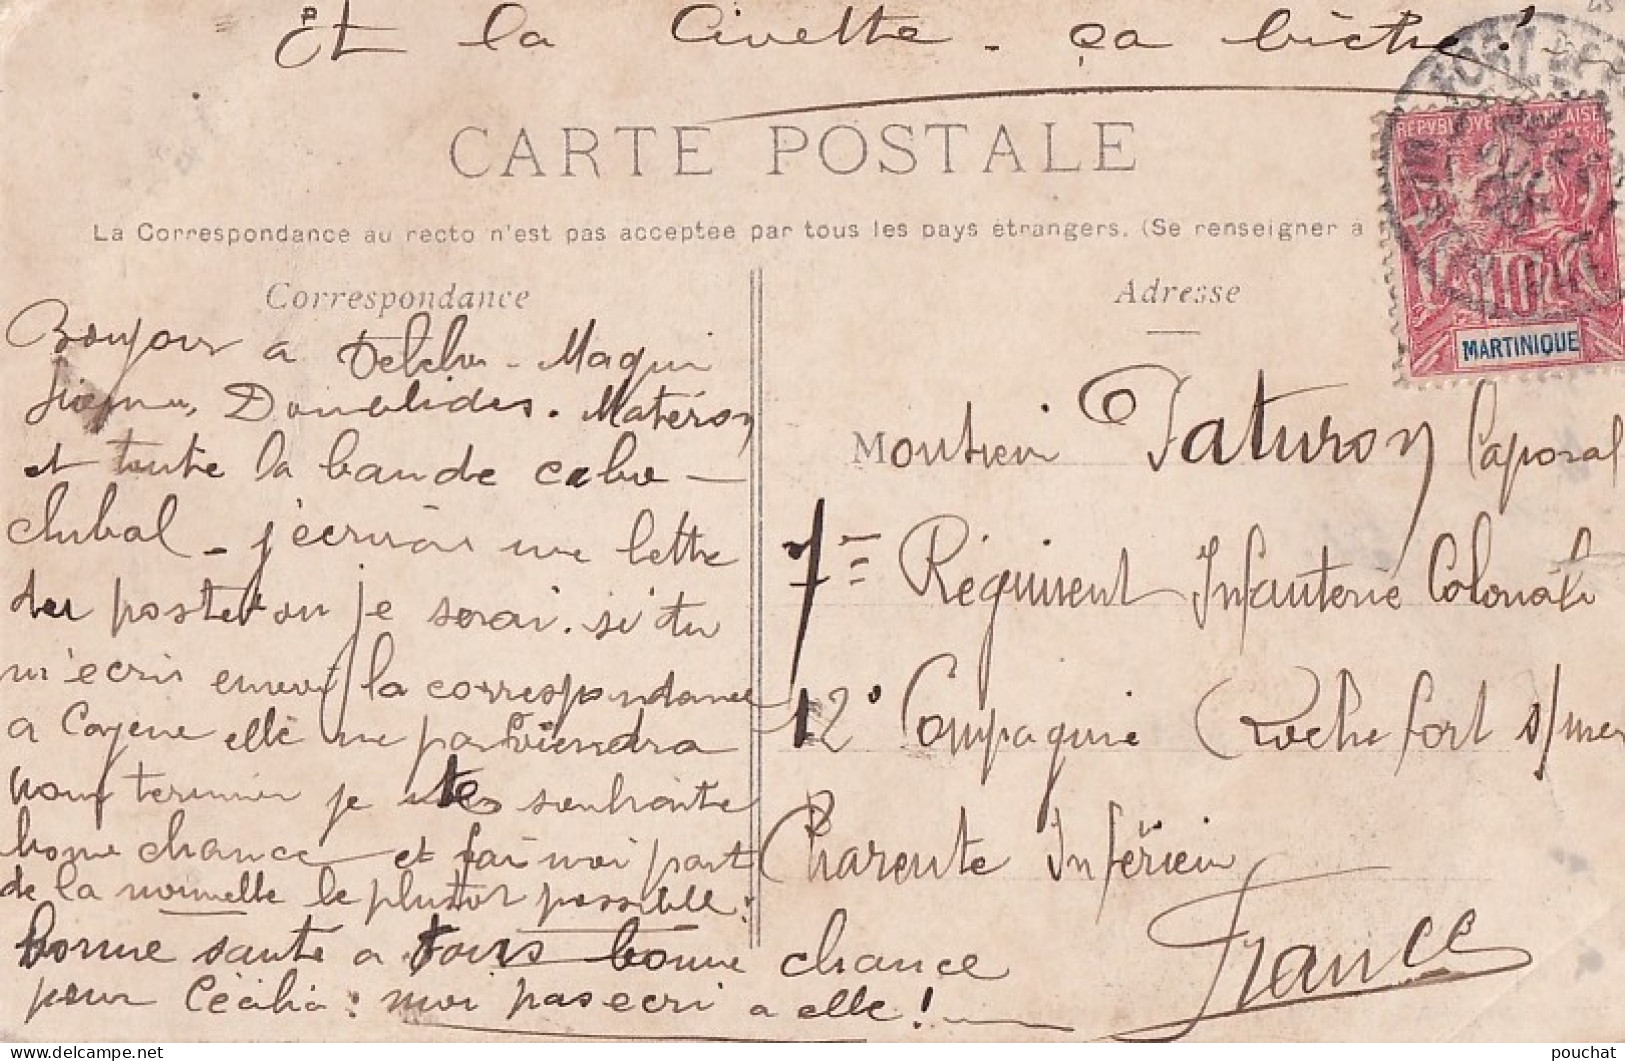 Et la Civette - ça biche !
CARTE POSTALE
La Correspondance au recto n'est pas acceptée par tous les pays étrangers. (Se renseigner à
Correspondance
Adresse
RÉPUBLIQUE FRANÇAISE
10
MARTINIQUE
Bonjour a - Maqui
Matéron
et toute la bande cabo -
chibal - j'écrirais une lettre
posterai ou je serai. si tu
m'ecris envoi la correspondance
a Cayene elle me parviendra
pour terminer je te souhaite
bonne chance et fai moi part
de la nouvelle le plustot possible :
bonne santé a tous bonne chance
pour Cécilia : moi pas ecri a elle !
Monsieur Paturon Caporal
7e Régiment Infanterie Coloniale
12° Compagnie Rochefort s/mer
Charente Inférieur
France
pouchat